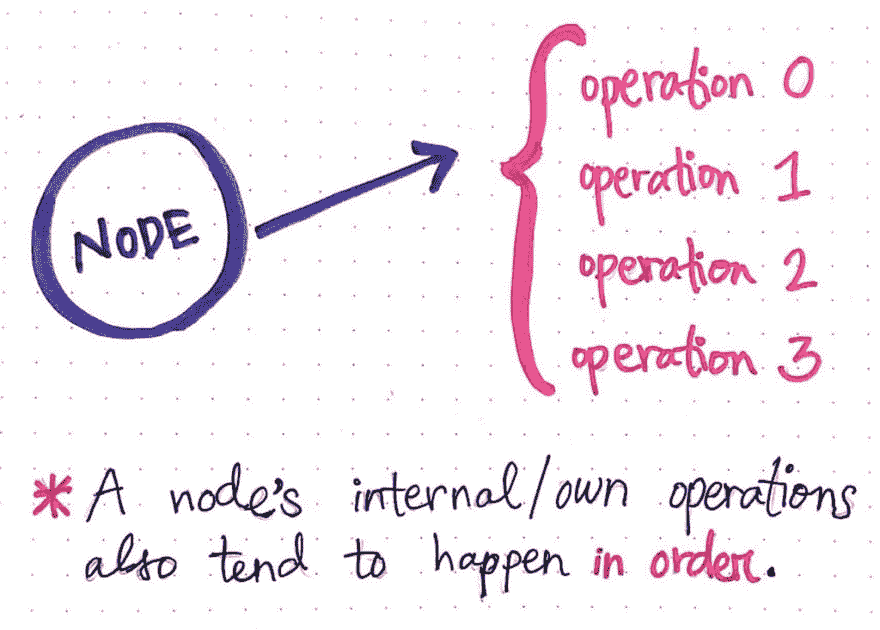 NODE
operation 0
operation 1
operation 2
operation 3
* A node's internal/own operations
also tend to happen in order.